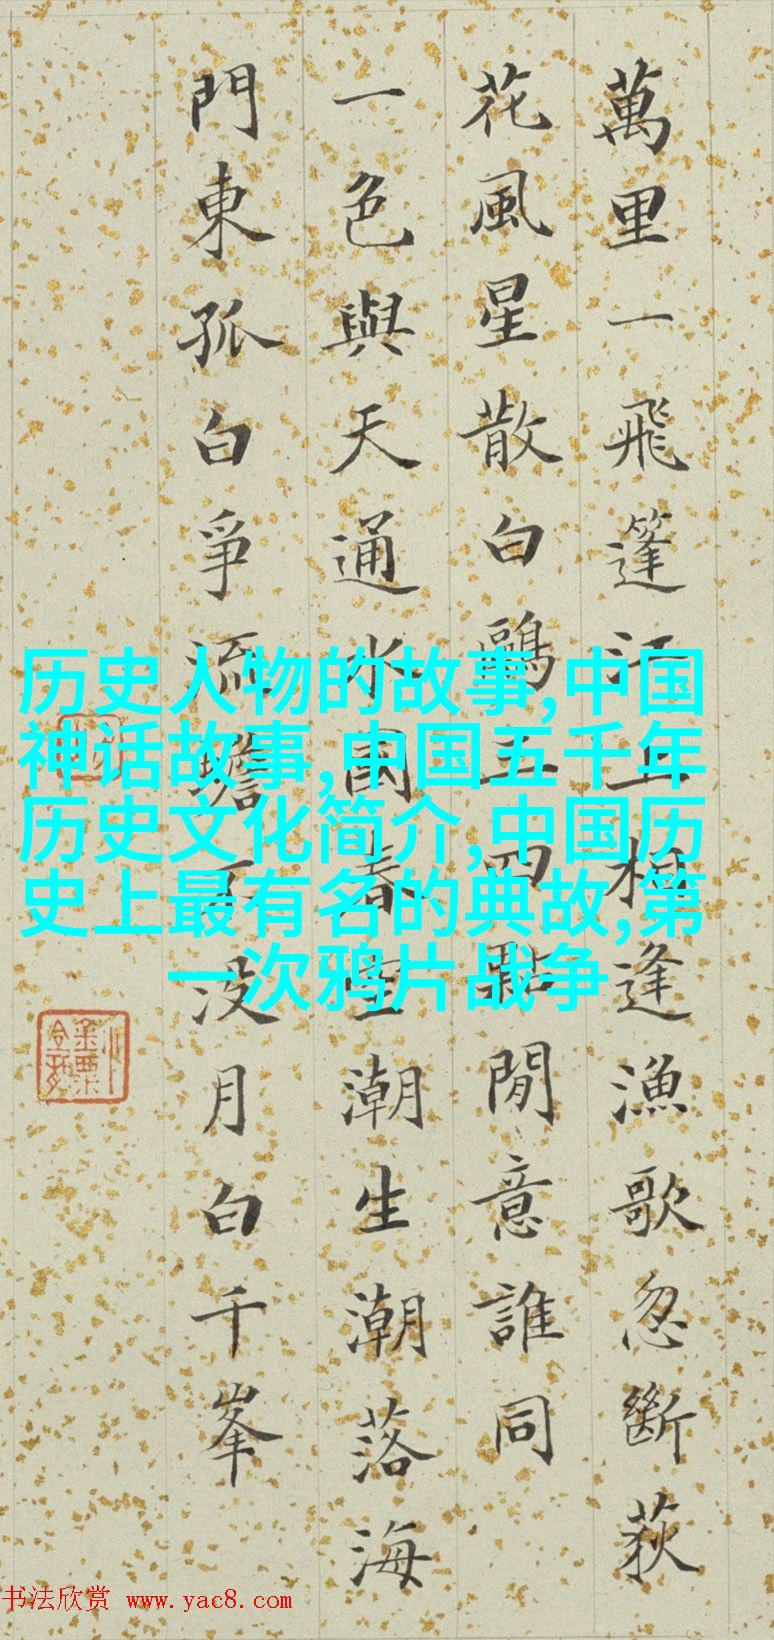 萬里一飛篷江上相逢漁歌忽斷荻
花風星散白鷗三四點閒意誰同
一色與天通水國春空潮生潮落海
門東孤白爭流蟾不没月白千峯
历史人物的故事,中国
神话故事,中国五千年
历史文化简介,中国历
史上最有名的典故,第
一次鸦片战争
书法欣赏 www.yac8.com